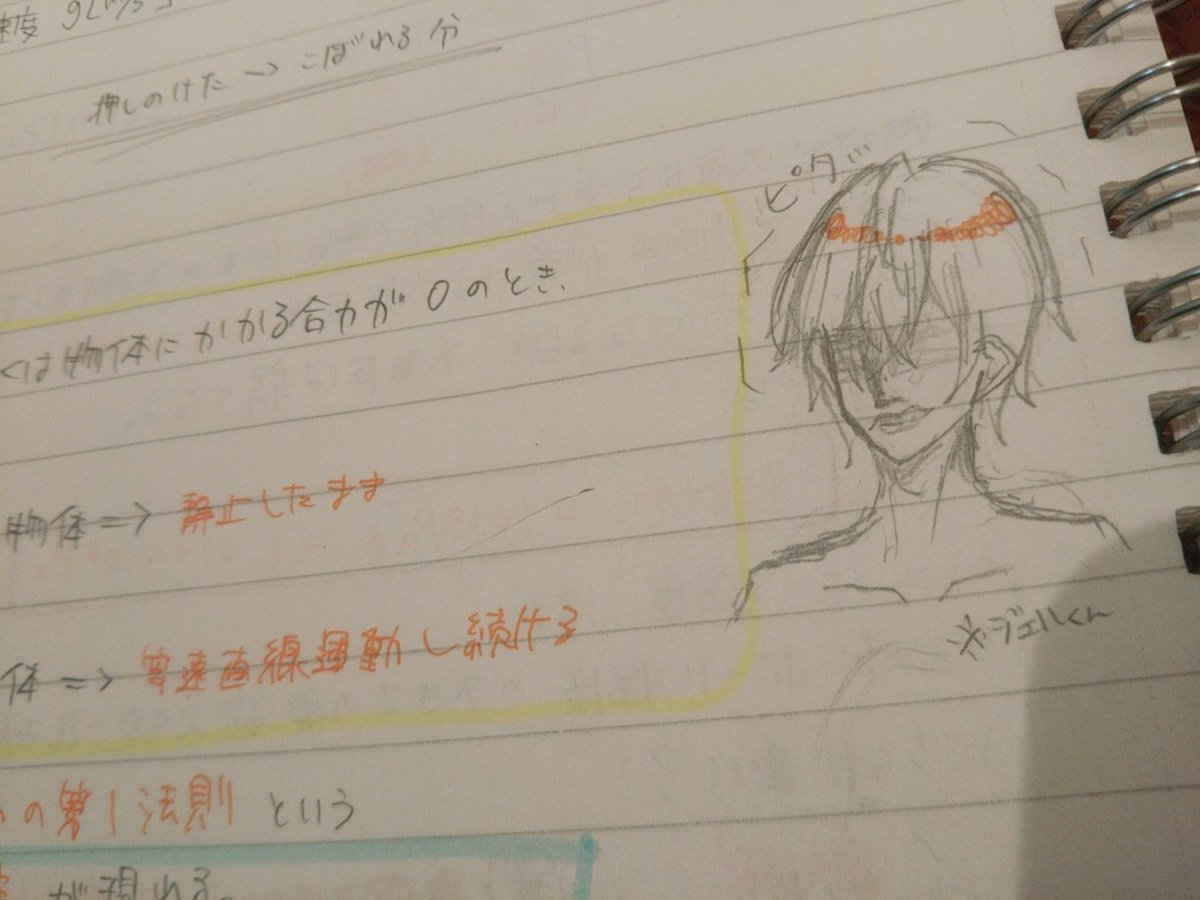 速度
押しのけた→こぼれる分
ピタッ
くは物体にかかる合力が0のとき
物体=> 静止したまま
体=> 等速直線運動し続ける
※ジェルくん
の第1法則 という
が現れる。